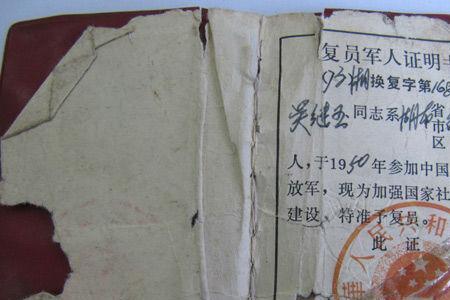 复员军人证明
93湖换复字第168
吴继玉同志系湖南省
市
区
人，于1950年参加中国
放军，现为加强国家社
建设，特准予复员。
此证
人民共和